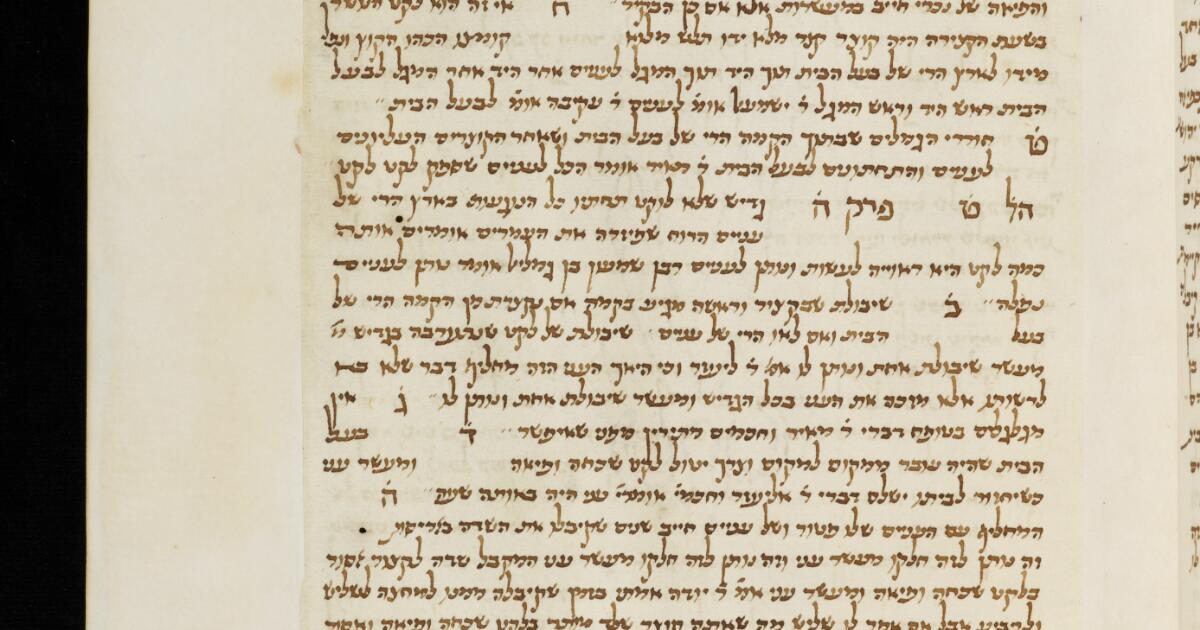 והפיאה של נכרי חייב במעשרות אלא אם כן הבקיר׃ ח אי זה הוא לקט הנושר
בשעת הקצירה היה קוצר קצר מלא ידו תלש מלוא קומצו הכהו הקוץ ונפל
מידו לארץ הרי של בעל הבית תוך היד תוך המגל לעניים אחר היד אחר המגל לבעל
הבית ראש היד וראש המגל ר׳ ישמעל אומ׳ לעניים ר׳ עקיבה אומ׳ לבעל הבית׃
ט חוררי הנמלים שבתוך הקמה הרי של בעל הבית ושאחר הקוצרים העליונים
לעניים והתחתונים לבעל הבית ר׳ מאיר אומר הכל לעניים שספק לקט לקט
הל׳ ט פרק ה גדיש שלא לוקט תחתיו כל הנוגעות בארץ הרי של
עניים הרוח שפיזרה את העמרים אומרים אותה
כמה לקט היא ראוייה לעשות ונותן לעניים רבן שמעון בן גמליאל אומר נותן לעניים
נפלה׃ ב שיבולת שבקציר וראשה מגיע בקמה אם נקצרת מן הקמה הרי של
בעל הבית ואם לאו הרי של עניים׃ שיבולת של לקט שנתערבה בגדיש
מעשר שיבולת אחת ונותן לו אמ׳ ר׳ ליעזר וכי היאך העני הזה מחליף דבר שלא בא
לרשותו אלא מזכה את העני בכל הגדיש ומעשר שיבולת אחת ונותן לו׃ ג אין
מגלגלים בטופח דברי ר׳ מאיר וחכמים מתירין מפני שאיפשר׃ ד בעל
הבית שהיה עובר ממקום למקום וצרך יטול לקט שכחה ופיאה ומעשר עני
כשיחזור לביתו ישלם דברי ר׳ אליעזר וחכמ׳ אומרי׳ עני היה באותה שעה׃ ה
המחליף עם העניים שלו פטור ושל עניים חייב שנים שקיבלו את השדה באריסות
זה נותן לזה חלקו מעשר עני וזה נותן לזה חלקו מעשר עני המקבל שדה לקצור אסור
בלקט שכחה ופיאה ומעשר עני אמ׳ ר׳ יודה אמתי בזמן שקיבלה ממנו למחצה לשליש
ולרביע אבל אם אמר לו שליש מה שאתה קוצר שלך מותר בלקט שכחה ופיאה ואסור